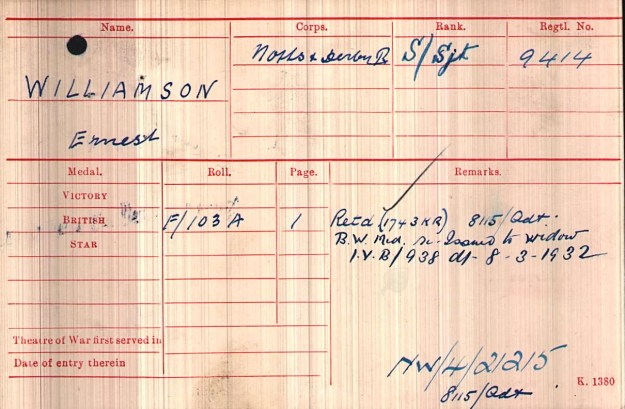 Name. Corps. Rank. Regtl. No.
WILLIAMSON Notts & Derby R S/Sjt 9414
Ernest
Medal. Roll. Page. Remarks.
VICTORY
BRITISH F/103 A 1 Retd (1743 KR) 8115/Adt.
STAR B.W. Med. re-Issued to widow
I.V.B/938 dt- 8-3-1932
Theatre of War first served in
Date of entry therein
NW/4/21215
8115/Adt
K. 1380